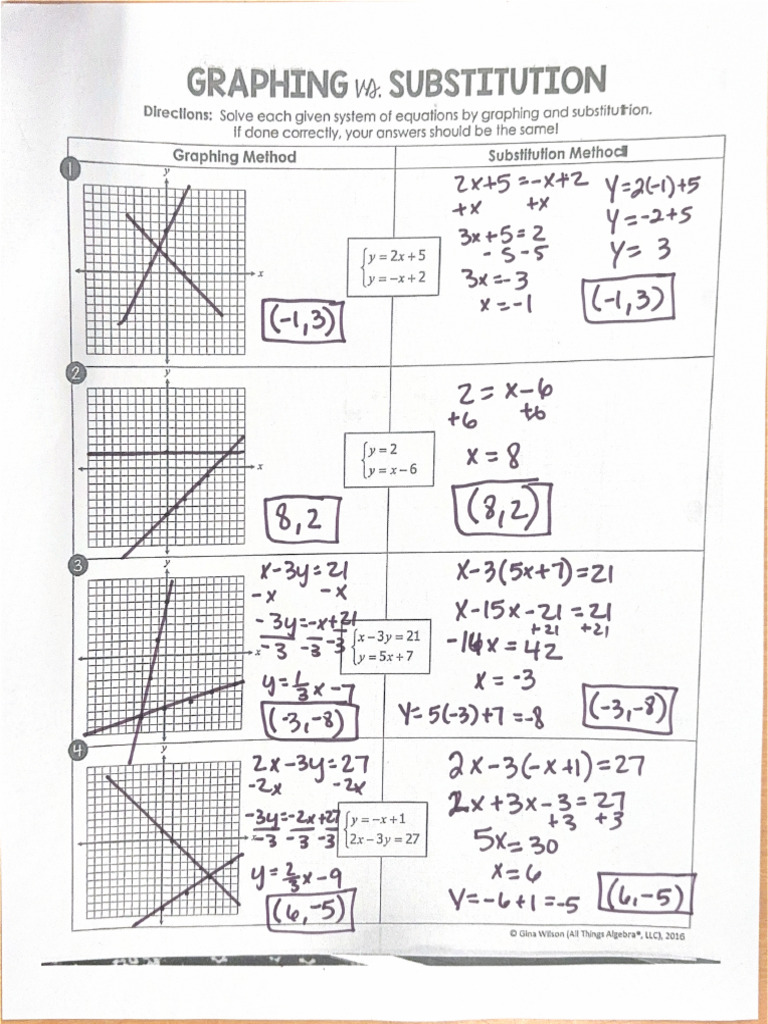 GRAPHING vs. SUBSTITUTION
Directions: Solve each given system of equations by graphing and substitution.
If done correctly, your answers should be the same!
Graphing Method
Substitution Method
1
y
x
(-1,3)
y = 2x + 5
y = -x + 2
2x+5 = -x+2
+x +x
3x+5 = 2
-5 -5
3x = -3
x = -1
y = 2(-1)+5
y = -2+5
y = 3
(-1,3)
2
y
x
8,2
y = 2
y = x - 6
2 = x-6
+6 +6
x = 8
(8,2)
3
y
x
x-3y = 21
-x -x
-3y = -x+21
-3 -3 -3
y = 1/3 x - 7
(-3,-8)
x - 3y = 21
y = 5x + 7
x-3(5x+7) = 21
x-15x-21 = 21
+21 +21
-14x = 42
x = -3
y = 5(-3)+7 = -8
(-3,-8)
4
y
x
2x-3y = 27
-2x -2x
-3y = -2x+27
-3 -3 -3
y = 2/3 x - 9
(6,-5)
y = -x + 1
2x - 3y = 27
2x-3(-x+1) = 27
2x+3x-3 = 27
+3 +3
5x = 30
x = 6
y = -6+1 = -5
(6,-5)
© Gina Wilson (All Things Algebra®, LLC), 2016